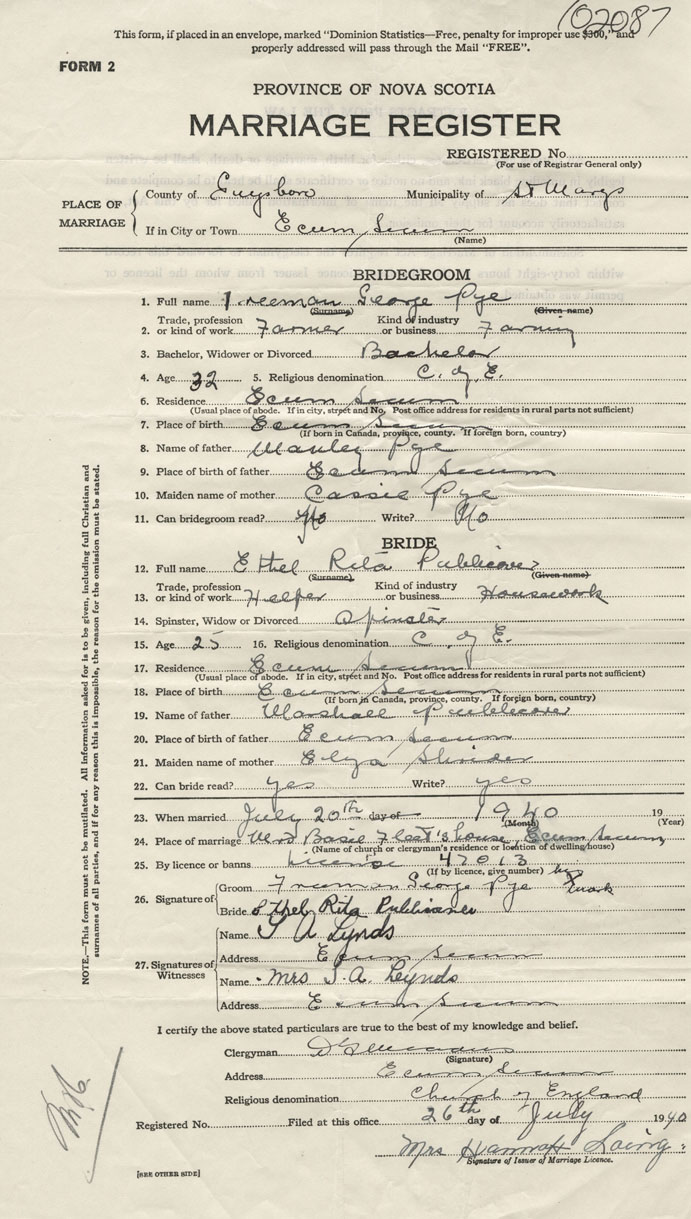 102087
This form, if placed in an envelope, marked "Dominion Statistics—Free, penalty for improper use $300," and
properly addressed will pass through the Mail "FREE".
FORM 2
PROVINCE OF NOVA SCOTIA
MARRIAGE REGISTER
REGISTERED No.
(For use of Registrar General only)
PLACE OF MARRIAGE
County of Guysboro Municipality of St Marys
If in City or Town Ecum Secum
(Name)
BRIDEGROOM
1. Full name Freeman George Pye
(Surname) (Given name)
2. Trade, profession or kind of work Farmer Kind of industry or business Farming
3. Bachelor, Widower or Divorced Bachelor
4. Age 32 5. Religious denomination C. of E.
6. Residence Ecum Secum
(Usual place of abode. If in city, street and No. Post office address for residents in rural parts not sufficient)
7. Place of birth Ecum Secum
(If born in Canada, province, county. If foreign born, country)
8. Name of father Manley Pye
9. Place of birth of father Ecum Secum
10. Maiden name of mother Cassie Pye
11. Can bridegroom read? No Write? No
BRIDE
12. Full name Ethel Rita Publicover
(Surname) (Given name)
13. Trade, profession or kind of work Helper Kind of industry or business Housework
14. Spinster, Widow or Divorced Spinster
15. Age 25 16. Religious denomination C. of E.
17. Residence Ecum Secum
(Usual place of abode. If in city, street and No. Post office address for residents in rural parts not sufficient)
18. Place of birth Ecum Secum
(If born in Canada, province, county. If foreign born, country)
19. Name of father Marshall Publicover
20. Place of birth of father Ecum Secum
21. Maiden name of mother
22. Can bride read? yes Write? yes
23. When married July 20th day of 1940 19
(Month) (Year)
24. Place of marriage Basil Fleet's house, Ecum Secum
(Name of church or clergyman's residence or location of dwelling house)
25. By licence or banns License 47013
(If by licence, give number)
26. Signature of
Groom Freeman George Pye his X mark
Bride Ethel Rita Publicover
27. Signatures of Witnesses
Name S A Lynds
Address Ecum Secum
Name Mrs S. A. Lynds
Address Ecum Secum
I certify the above stated particulars are true to the best of my knowledge and belief.
Clergyman
(Signature)
Address Ecum Secum
Religious denomination Church of England
Registered No. Filed at this office 26th day of July 1940
Mrs Hannah Laing
Signature of Issuer of Marriage Licence.
[SEE OTHER SIDE]
NOTE.—This form must not be mutilated. All information asked for is to be given, including full Christian and
surnames of all parties, and if for any reason this is impossible, the reason for the omission must be stated.